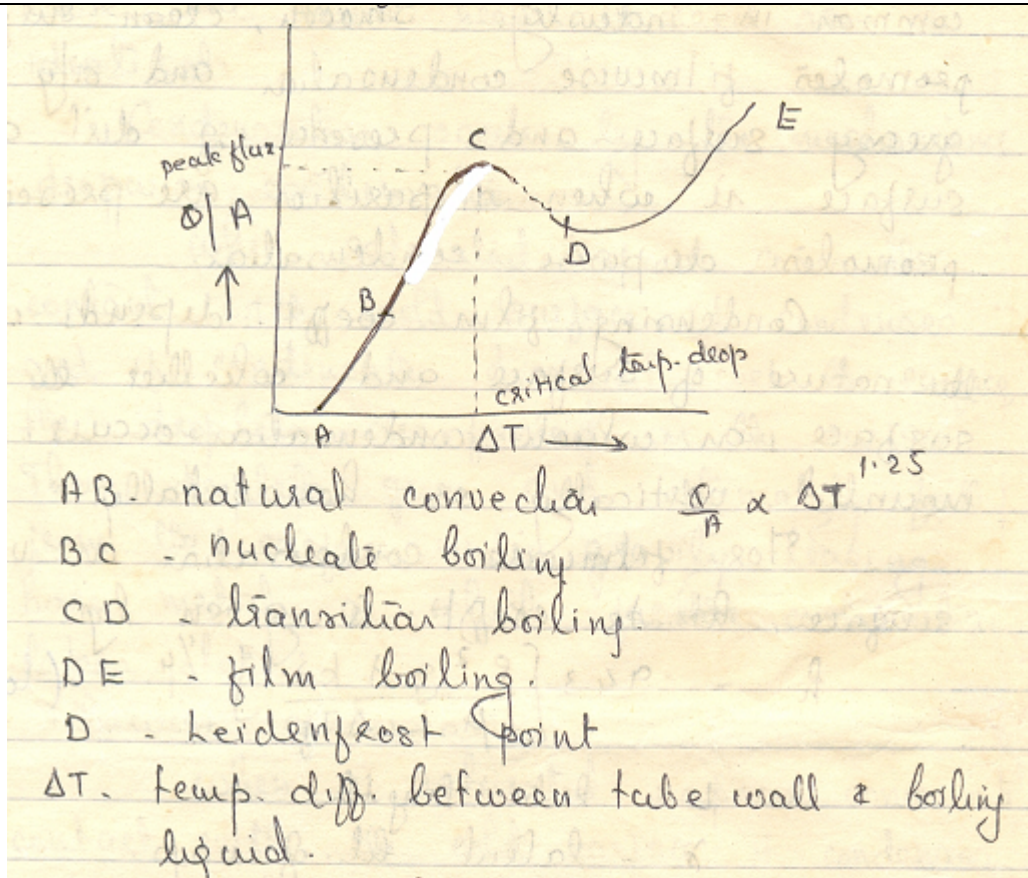 E
C
peak flux
Q/A
D
B
critical temp. drop
A ΔT
AB - natural convection Q/A ∝ ΔT^1.25
BC - nucleate boiling
CD - transition boiling.
DE - film boiling.
D - Leidenfrost point
ΔT - temp. diff. between tube wall & boiling
liquid.